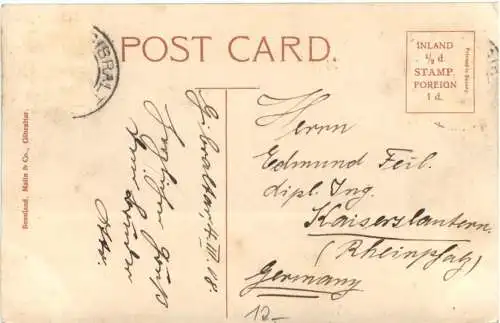 POST CARD.
INLAND
½ d.
STAMP.
FOREIGN
1 d.
Printed in Saxony.
Beanland, Malin & Co., Gibraltar.
GIBRALT
Gibraltar, 4. III. 08.
Herzlichen Gruß
Herrn
Edmund Feil.
dipl. Ing.
Kaiserslautern.
(Rheinpfalz)
Germany
12.-